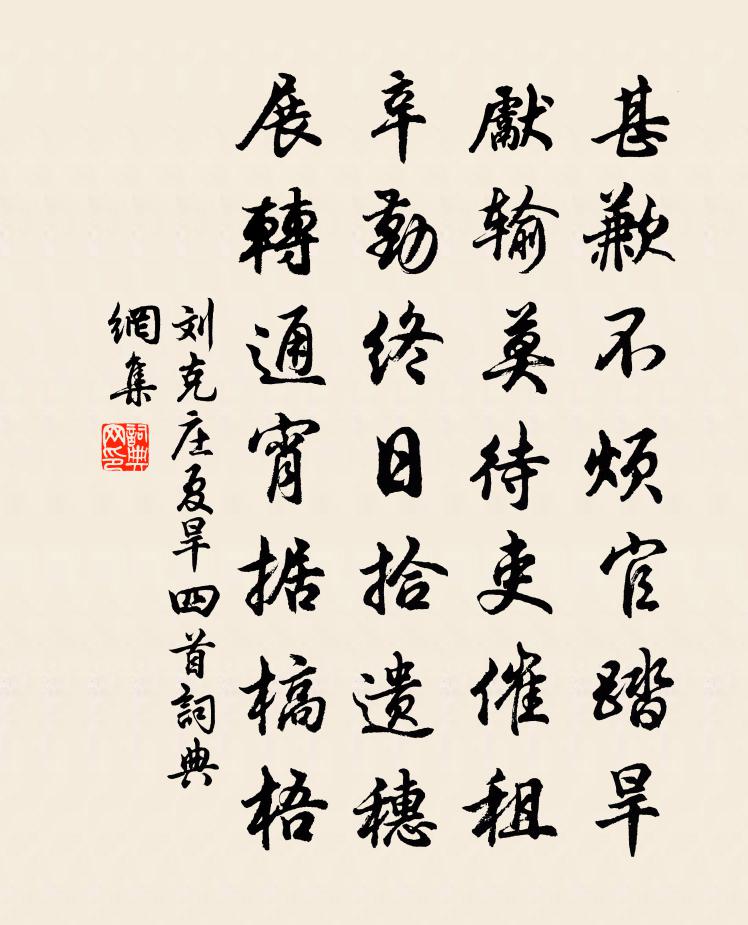 甚歉不烦官踏旱
獻输莫待吏催租
辛勤终日拾遗穗
展轉通宵据槁梧
刘克庄夏旱四首詞典
網集
詞典
网印